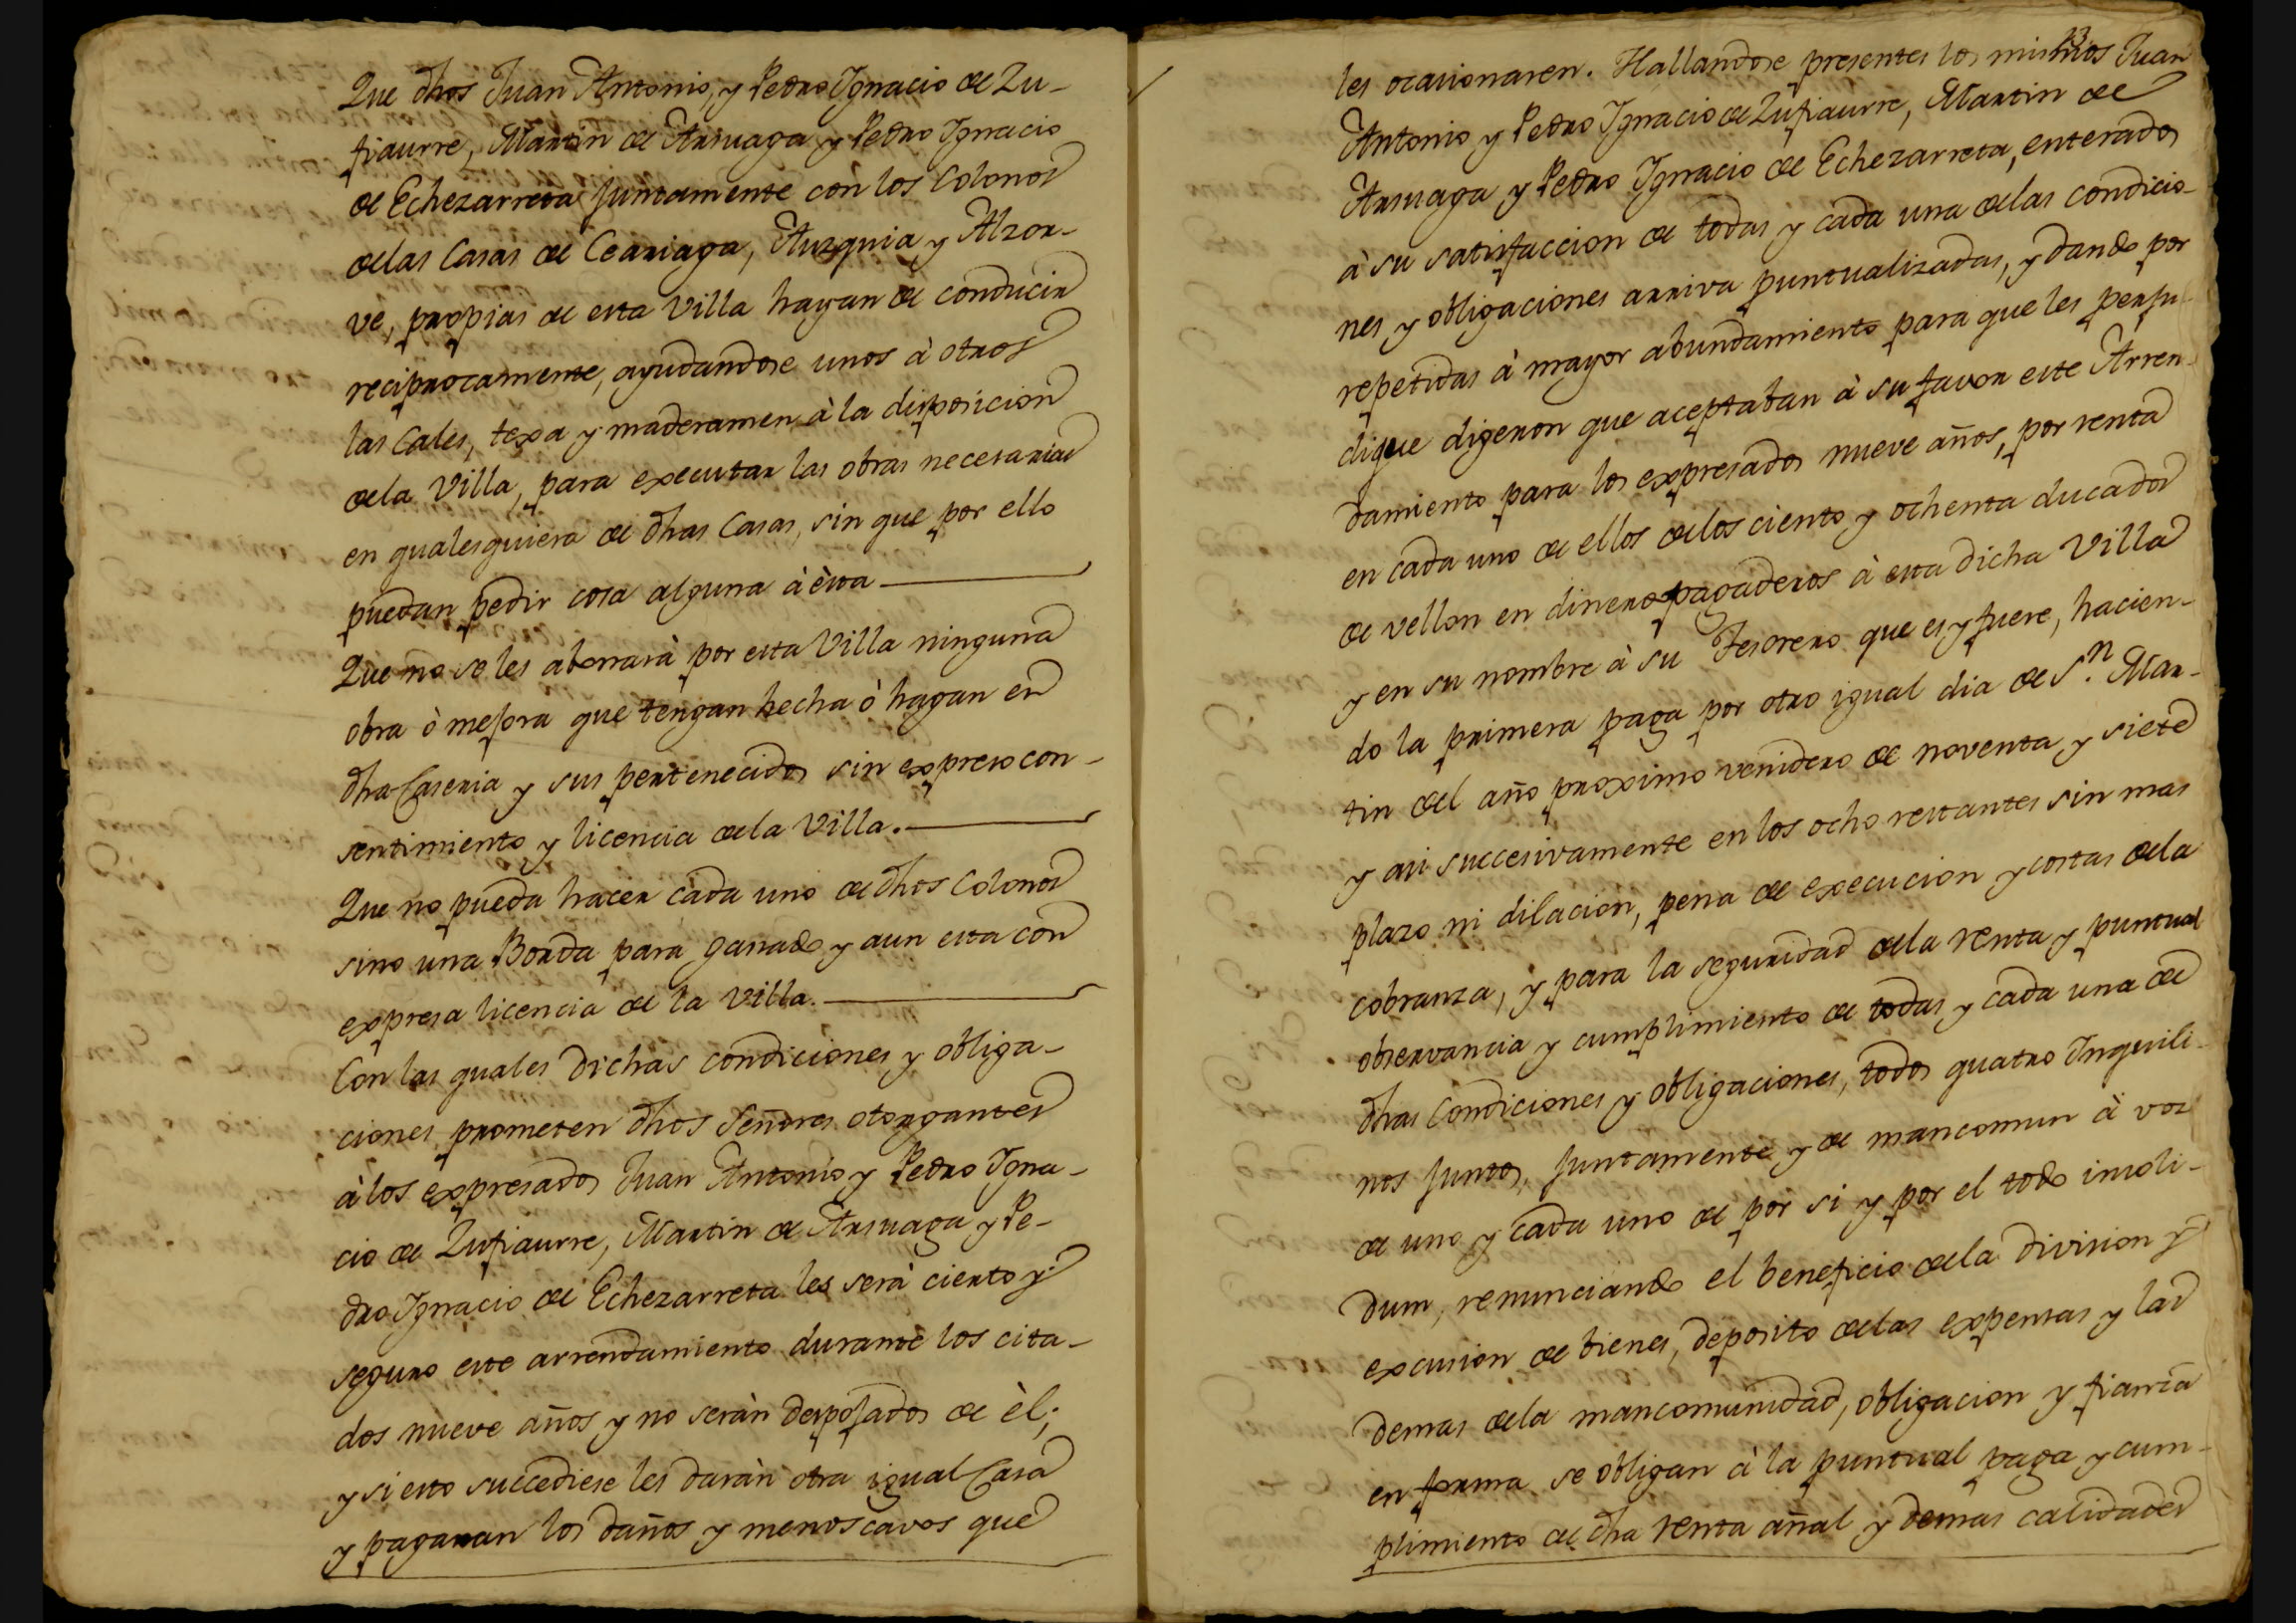 Que dhos Juan Antonio, y Pedro Ygnacio de Zu-
fiaurre, Martin de Arsuaga y Pedro Ygnacio
de Echezarreta juntamente con los Colonos
delas Casas de Ceariaga, Auzquia y Alzor-
ve, propias de esta Villa hayan de conducir
reciprocamente, ayudandose unos à otros
las Cales, texa y maderamen à la disposicion
dela Villa, para executar las obras necesarias
en qualesquiera de dhas Casas, sin que por ello
puedan pedir cosa alguna à èsta
Que no se les abonarà por esta Villa ninguna
obra ò mejora que tengan hecha ò hagan en
dha Caseria y sus pertenecidos sin expreso con-
sentimiento y licencia dela Villa.
Que no pueda hacer cada uno de dhos Colonos
sino una Borda para ganado y aun esta con
expresa licencia de la Villa.
Con las quales dichas condiciones y obliga-
ciones prometen dhos Señores otorgantes
à los expresados Juan Antonio y Pedro Ygna-
cio de Zufiaurre, Martin de Arsuaga y Pe-
dro Ygnacio de Echezarreta les serà cierto y
seguro este arrendamiento durante los cita-
dos nueve años y no seràn despojados de èl;
y si esto succediese les daràn otra igual Casa
y pagaran los daños y menoscavos que
13
les ocasionaren. Hallandose presentes los mismos Juan
Antonio y Pedro Ygnacio de Zufiaurre, Martin de
Arsuaga y Pedro Ygnacio de Echezarreta, enterados
à su satisfaccion de todas y cada una delas condicio-
nes y obligaciones arriva puntualizadas, y dando por
repetidas à mayor abundamiento para que les perju-
dique digeron que aceptaban à su favor este Arren-
damiento para los expresados nueve años, por renta
en cada uno de ellos delos ciento y ochenta ducados
de vellon en dinero pagaderos à esta dicha Villa
y en su nombre à su Tesorero que es y fuere, hacien-
do la primera paga por otro igual dia de Sn. Mar-
tin del año proximo venidero de noventa y siete
y asi succesivamente en los ocho restantes sin mas
plazo ni dilacion, pena de execucion y costas dela
cobranza, y para la seguridad dela renta y puntual
observancia y cumplimiento de todas y cada una de
dhas Condiciones y obligaciones, todos quatro Inquili-
nos juntos, juntamente y de mancomun à voz
de uno y cada uno de por si y por el todo insoli-
dum, renunciando el beneficio dela division y
excusion de bienes, deposito delas expensas y las
demas dela mancomunidad, obligacion y fianza
en forma se obligan à la puntual paga y cum-
plimiento de dha renta añal y demas calidades